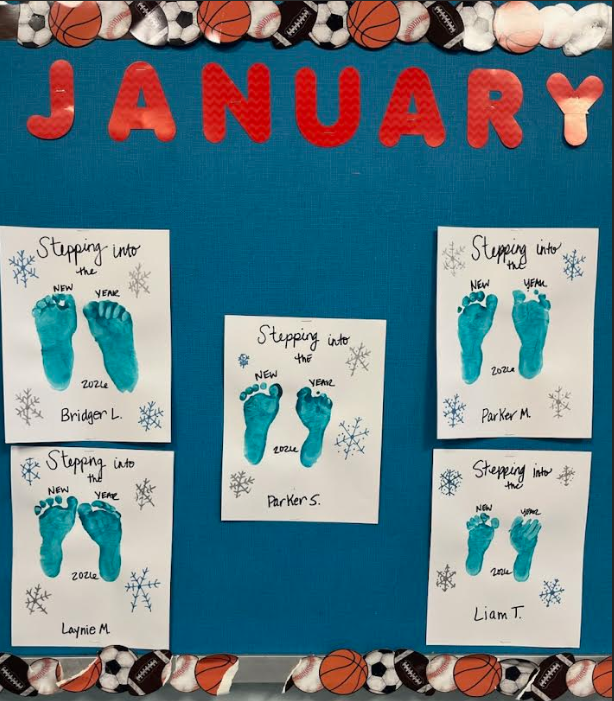 JANUARY
Stepping into
the
NEW YEAR
2026
Bridger L.
Stepping into
the
NEW YEAR
2026
Laynie M
Stepping into
THE
NEW YEAR
2026
Parker S.
Stepping into
the
NEW YEAR
2026
Parker M.
Stepping into
the
NEW YEAR
2026
Liam T.